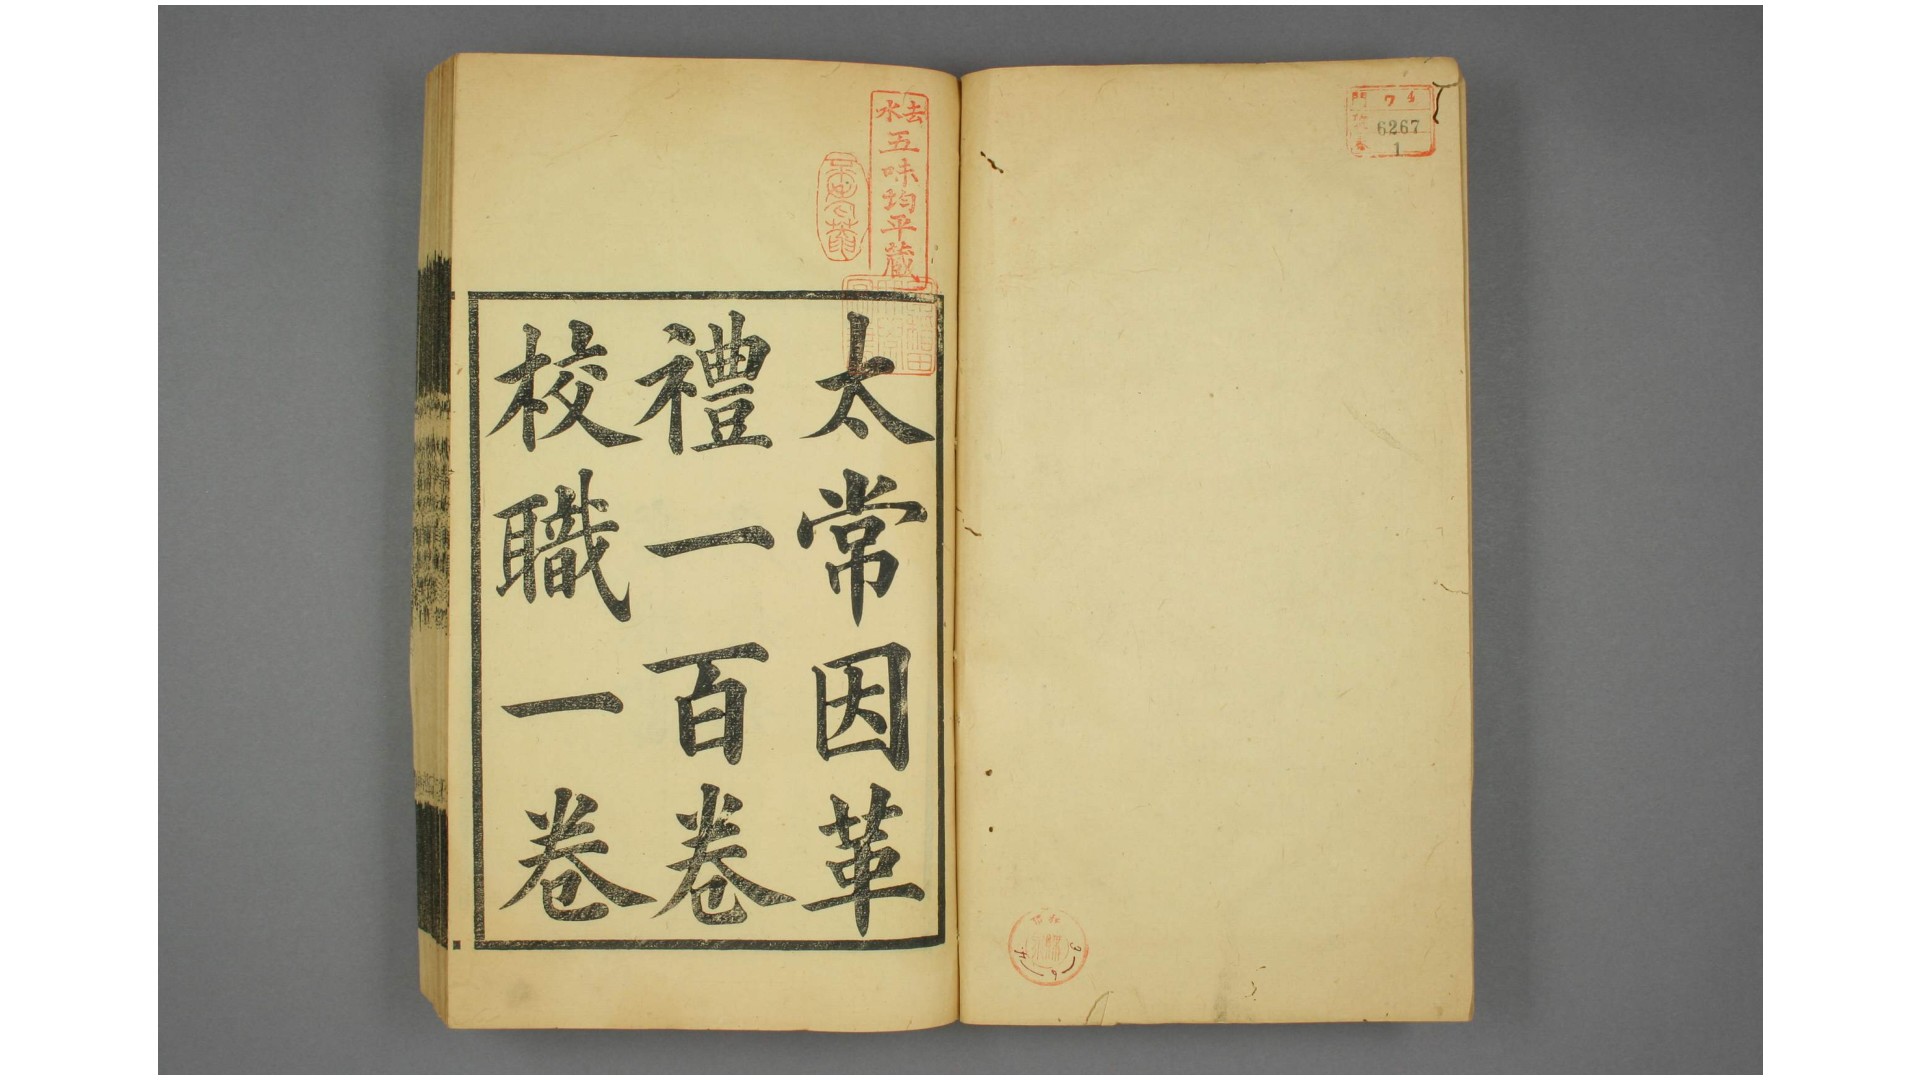 門 7 4
6267
1
去水
五味均平蔵
太常因革
禮一百卷
校職一卷